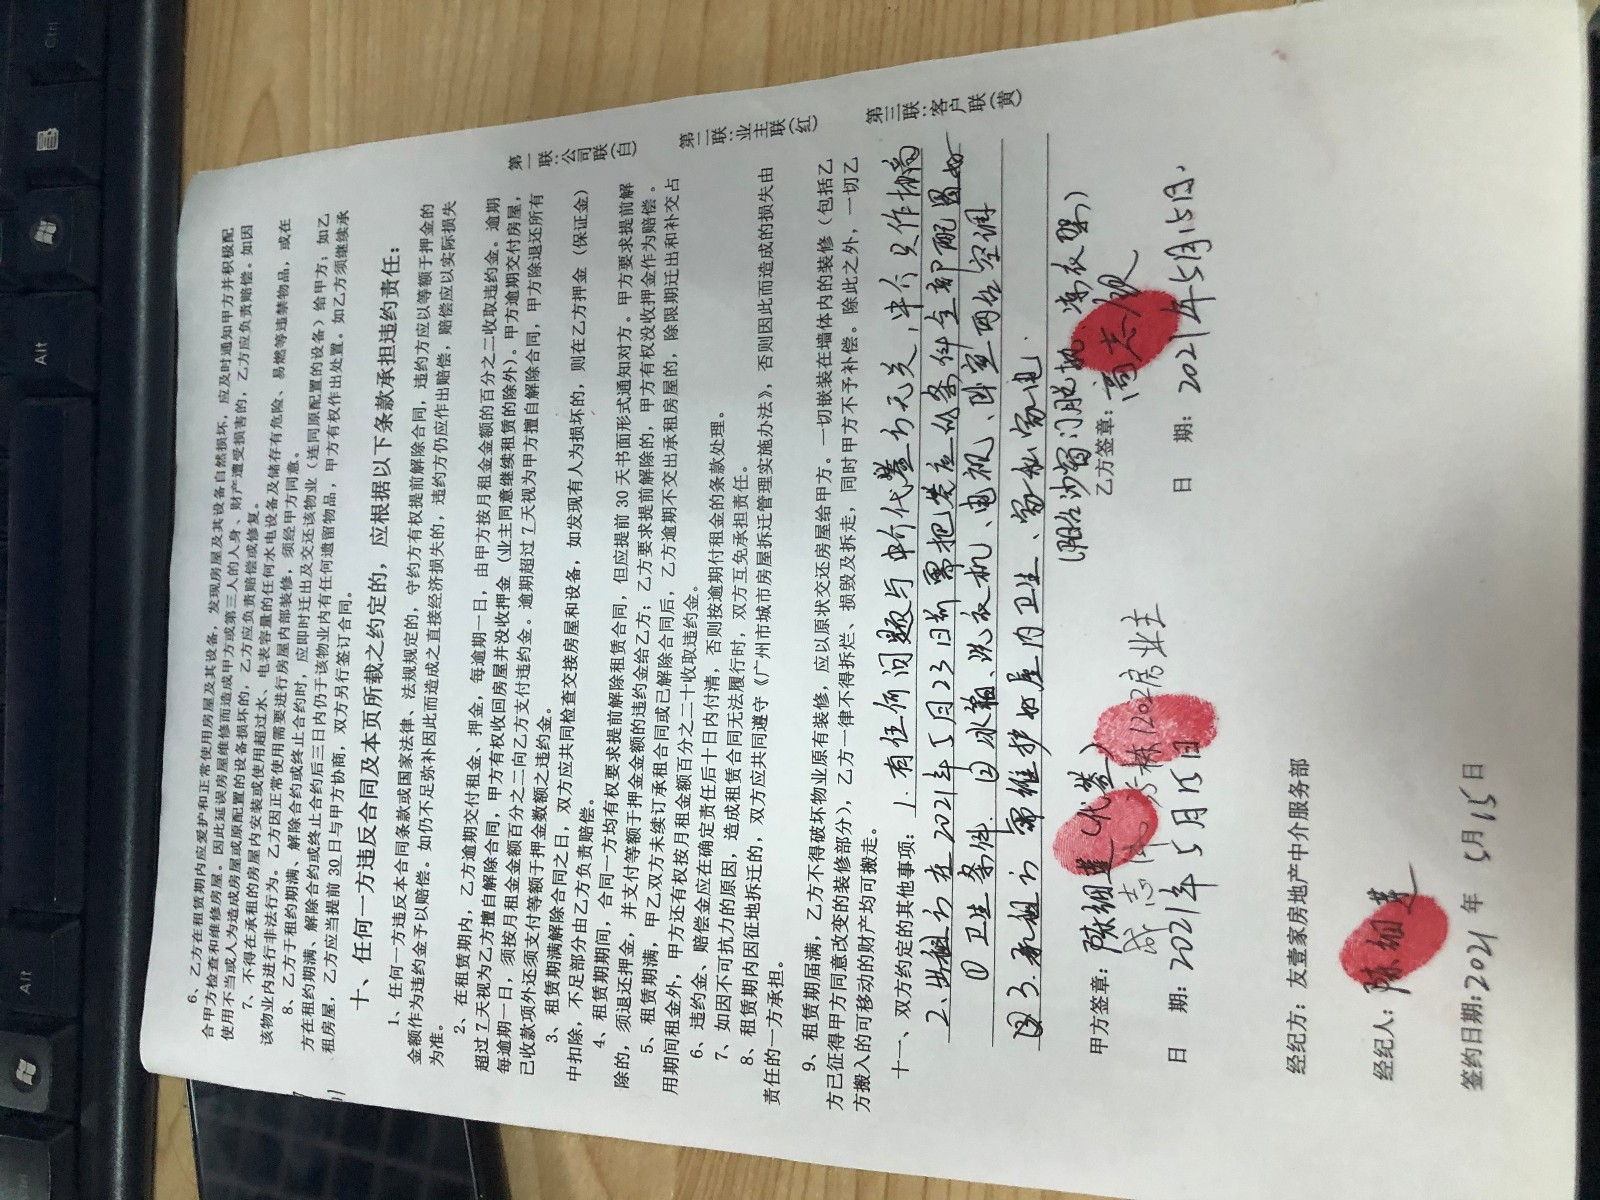 6、乙方在租赁期内应爱护和正常使用房屋及其设备，发现房屋及其设备自然损坏，应及时通知甲方并积极配
合甲方检查和维修房屋。因此延误房屋维修而造成甲方或第三人的人身、财产遭受损害的，乙方应负责赔偿。如因
使用不当或人为造成房屋或原配置的设备损坏的，乙方应负责赔偿或修复。
7、不得在承租的房屋内安装或使用超过水、电表容量的任何水电设备及储存有危险、易燃等违禁物品，或在
该物业内进行非法行为。乙方因正常使用需要进行房屋内部装修，须经甲方同意。
8、乙方于租约期满、解除合约或终止合约时，应即时迁出及交还该物业（连同原配置的设备）给甲方；如乙
方在租约期满、解除合约或终止合约后三日内仍于该物业内有任何遗留物品，甲方有权作出处置。如乙方须继续承
租房屋，乙方应当提前30日与甲方协商，双方另行签订合同。
十、任何一方违反合同及本页所载之约定的，应根据以下条款承担违约责任：
1、任何一方违反本合同条款或国家法律、法规规定的，守约方有权提前解除合同，违约方应以等额于押金的
金额作为违约金予以赔偿。如仍不足弥补因此而造成之直接经济损失的，违约方仍应作出赔偿，赔偿应以实际损失
为准。
2、在租赁期内，乙方逾期交付租金、押金，每逾期一日，由甲方按月租金金额的百分之二收取违约金。逾期
超过7天视为乙方擅自解除合同，甲方有权收回房屋并没收押金（业主同意继续租赁的除外）。甲方逾期交付房屋，
每逾期一日，须按月租金金额百分之二向乙方支付违约金。逾期超过7天视为甲方擅自解除合同，甲方除退还所有
已收款项外还须支付等额于押金数额之违约金。
3、租赁期满解除合同之日，双方应共同检查交接房屋和设备，如发现有人为损坏的，则在乙方押金（保证金）
中扣除，不足部分由乙方负责赔偿。
4、租赁期期间，合同一方均有权要求提前解除租赁合同，但应提前30天书面形式通知对方。甲方要求提前解
除的，须退还押金，并支付等额于押金金额的违约金给乙方；乙方要求提前解除的，甲方有权没收押金作为赔偿。
5、租赁期满，甲乙双方未续订承租合同或已解除合同后，乙方逾期不交出承租房屋的，除限期迁出和补交占
用期间租金外，甲方还有权按月租金额百分之二十收取违约金。
6、违约金、赔偿金应在确定责任后十日内付清，否则按逾期付租金的条款处理。
7、如因不可抗力的原因，造成租赁合同无法履行时，双方互免承担责任。
8、租赁期内因征地拆迁的，双方应共同遵守《广州市城市房屋拆迁管理实施办法》，否则因此而造成的损失由
责任的一方承担。
9、租赁期届满，乙方不得破坏物业原有装修，应以原状交还房屋给甲方。一切嵌装在墙体内的装修（包括乙
方已征得甲方同意改变的装修部分），乙方一律不得拆烂、损毁及拆走，同时甲方不予补偿。除此之外，一切乙
方搬入的可移动的财产均可搬走。
十一、双方约定的其他事项：1.有任何问题与中介代签方无关，中介只作协商
2.出租方在2021年5月23日前需把完应的条件全部配置好
①卫生条件 ②冰箱、洗衣机、电视、卧室两台空调
3.承租方需维护好屋内卫生、家私家电.
晾衣架）
甲方签章：陈细莲（代签）
1202房业主
乙方签章：
日 期：2021年5月15日
日 期：2021年5月15日.
经纪方：友壹家房地产中介服务部
经纪人：陈细莲
签约日期：2021年5月15日
第一联：公司联（白）
第二联：业主联（红）
第三联：客户联（黄）
Alt
Alt
Ctrl